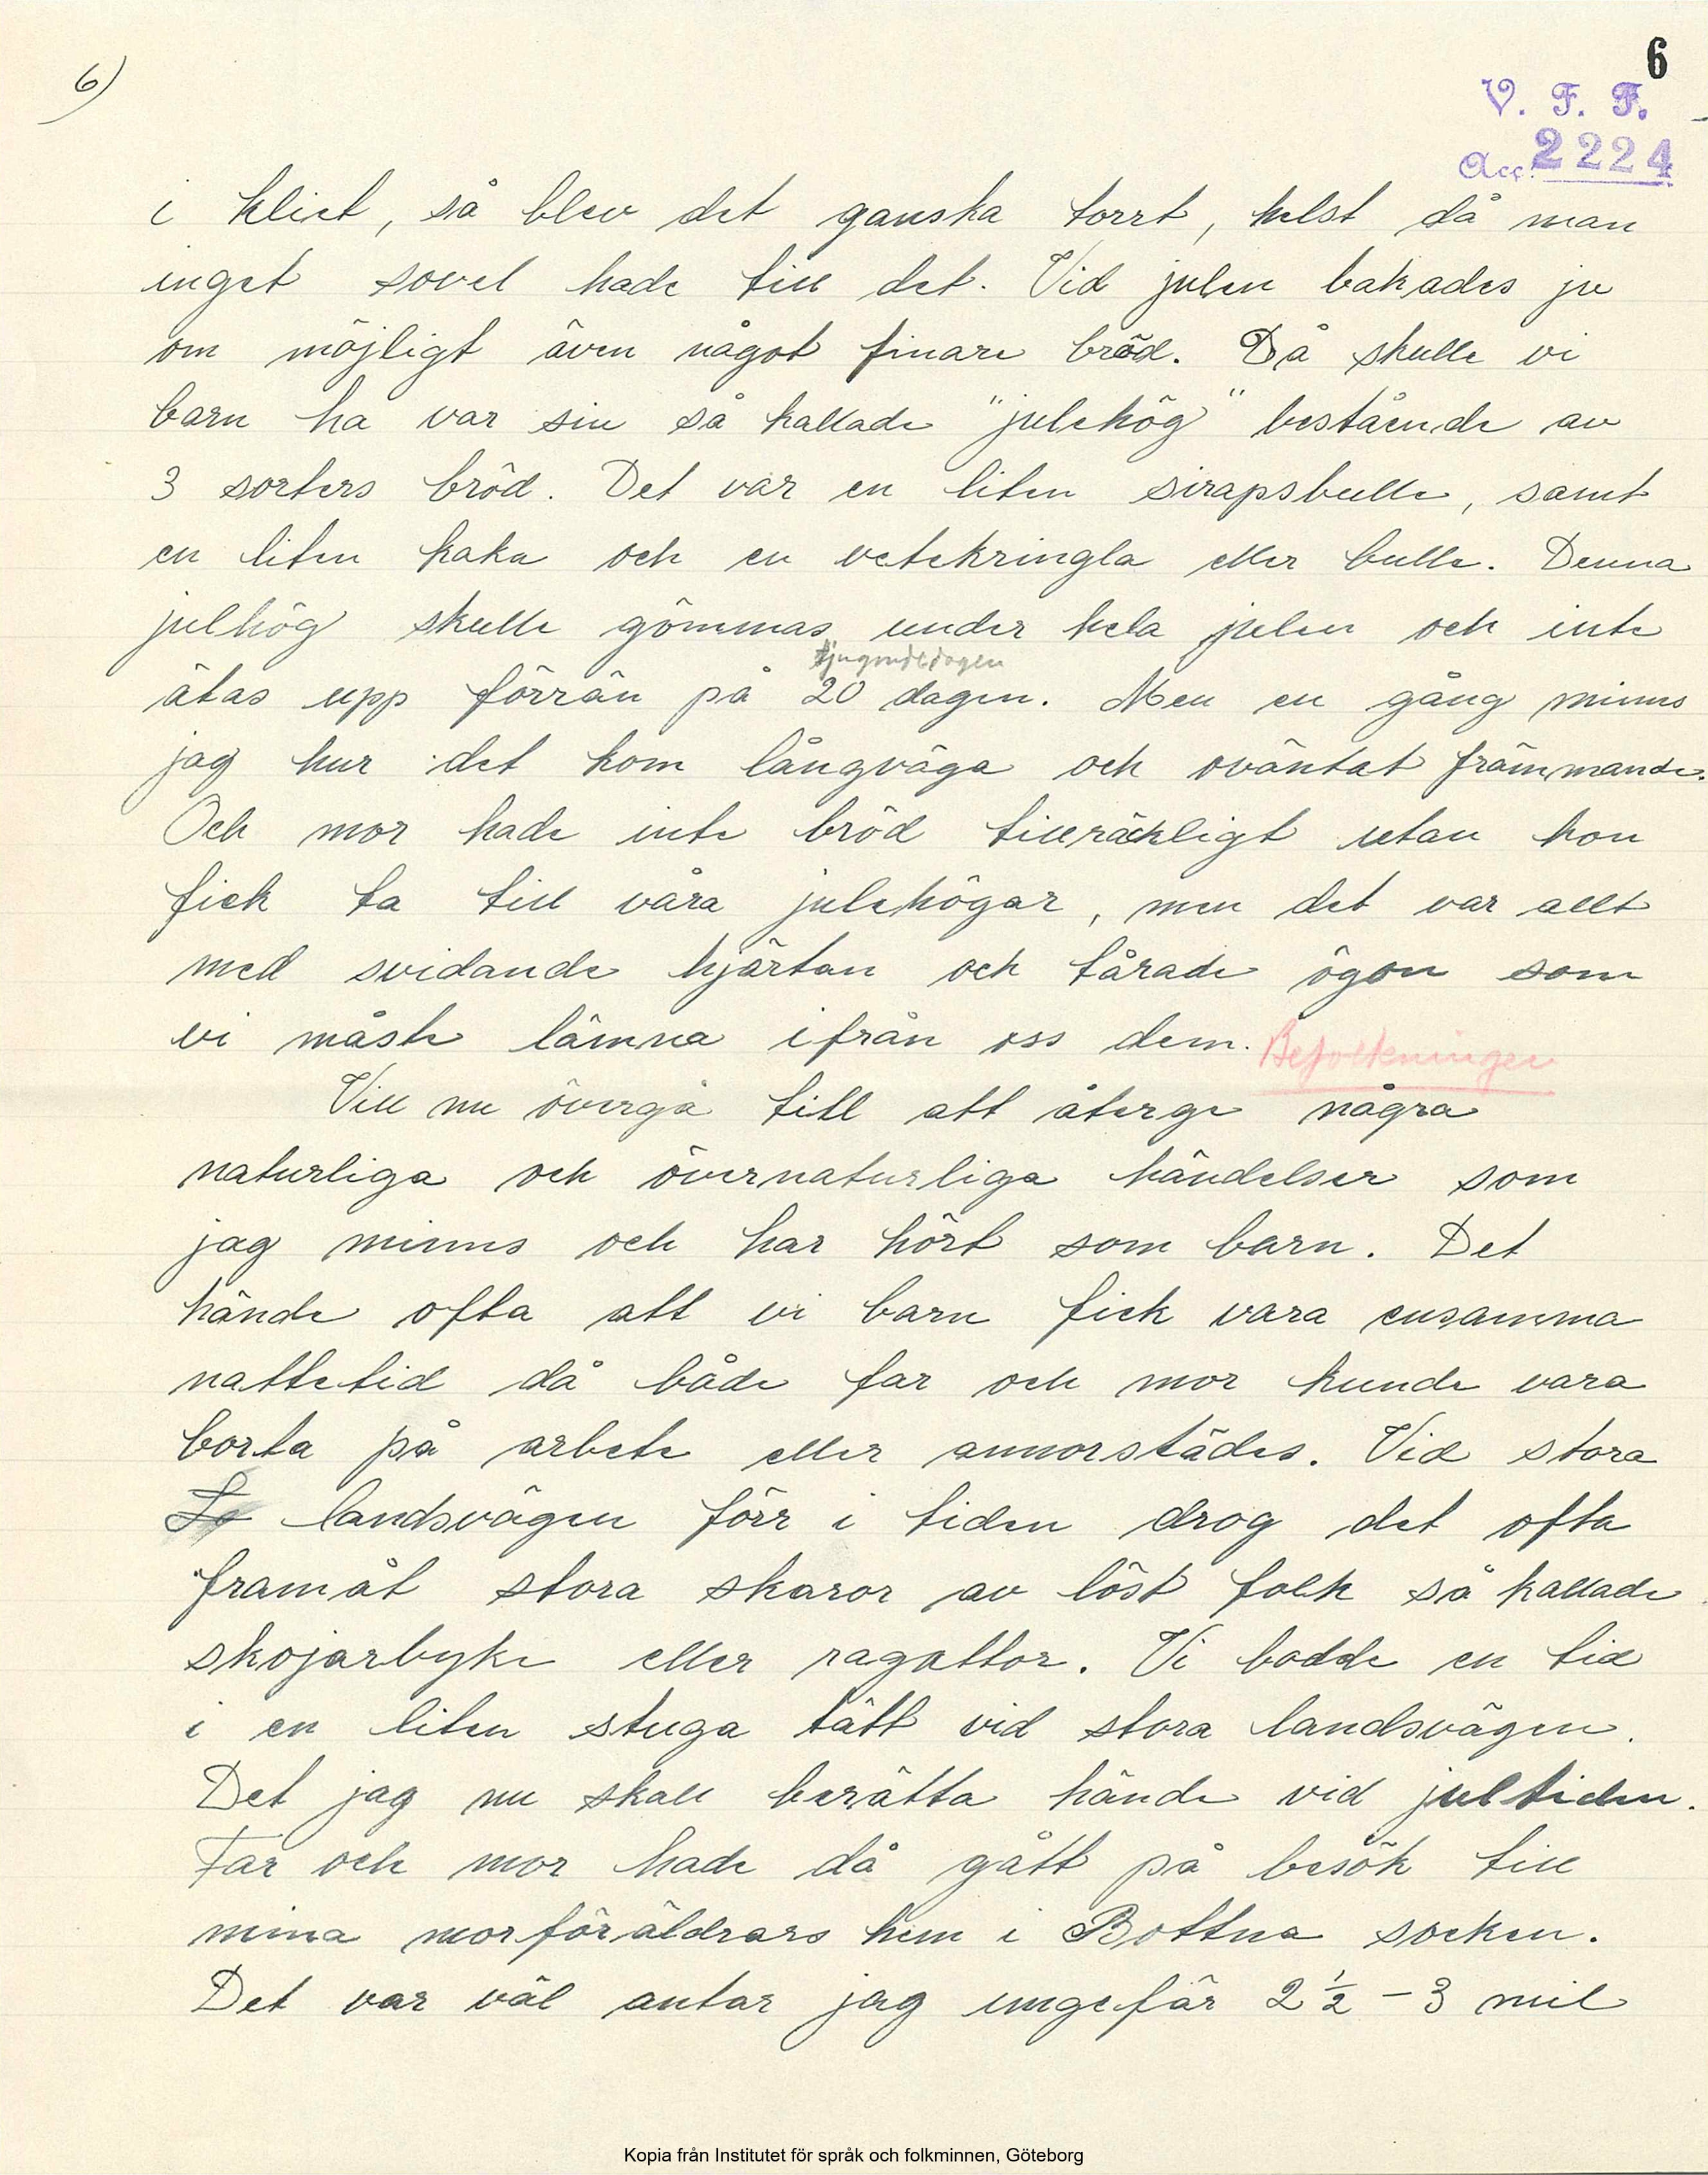 6)
6
V. F. F.
Acc. 2224
i kliet, så blev det ganska torrt, helst då man
inget sovel hade till det. Vid julen bakades ju
om möjligt även något finare bröd. Då skulle vi
barn ha var sin så kallade "julehög" bestående av
3 sorters bröd. Det var en liten sirapsbulle, samt
en liten kaka och en vetekringla eller bulle. Denna
julhög skulle gömmas under hela julen och inte
tjugondedagen
ätas upp förrän på 20 dagen. Men en gång minns
jag hur det kom långväga och oväntat främmande.
Och mor hade inte bröd tillräckligt utan hon
fick ta till våra julehögar, men det var allt
med svidande hjärtan och tårade ögon som
vi måste lämna ifrån oss dem. Befolkningen
Vill nu övergå till att återge några
naturliga och övernaturliga händelser som
jag minns och har hört som barn. Det
hände ofta att vi barn fick vara ensamma
nattetid då både far och mor kunde vara
borta på arbete eller annorstädes. Vid stora
landsvägen förr i tiden drog det ofta
framåt stora skaror av löst folk så kallade
skojarbyke eller ragattor. Vi bodde en tid
i en liten stuga tätt vid stora landsvägen.
Det jag nu skall berätta hände vid jultiden.
Far och mor hade då gått på besök till
mina morföräldrars hem i Bottna socken.
Det var väl antar jag ungefär 2 ½ - 3 mil
Kopia från Institutet för språk och folkminnen, Göteborg